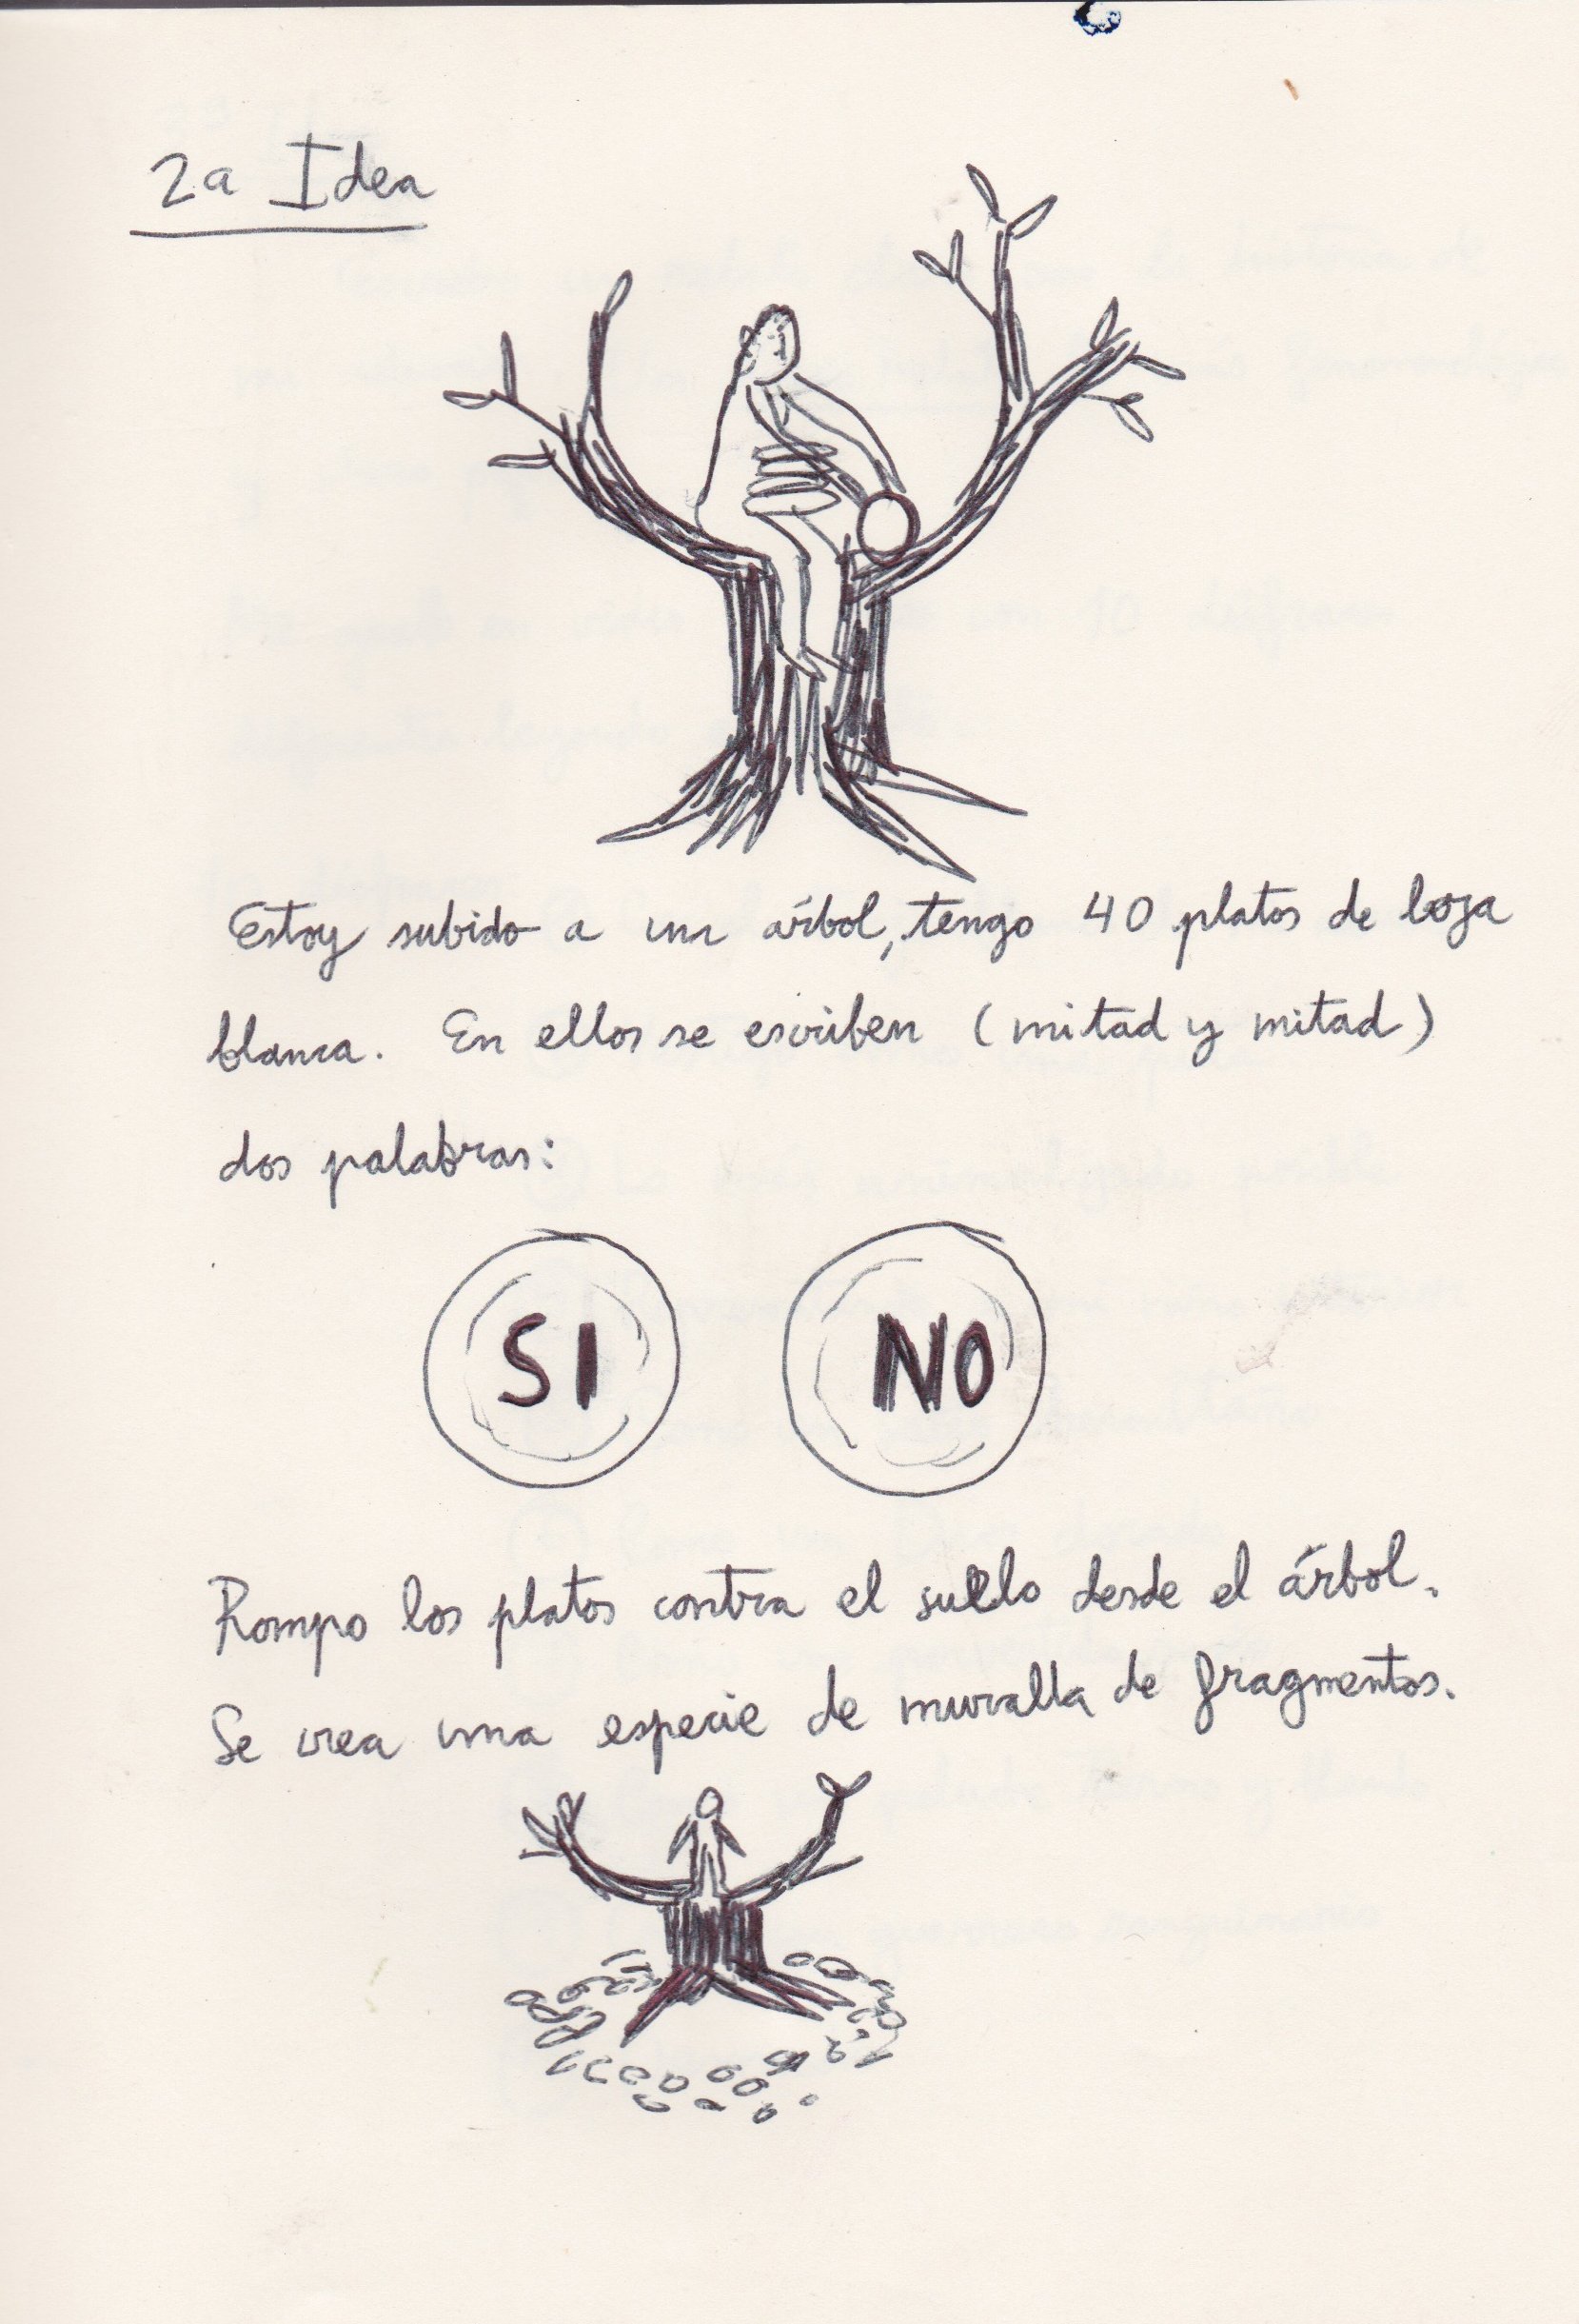 2a Idea
Estoy subido a un árbol, tengo 40 platos de loza
blanca. En ellos se escriben (mitad y mitad)
dos palabras:
SI NO
Rompo los platos contra el suelo desde el árbol.
Se crea una especie de muralla de fragmentos.